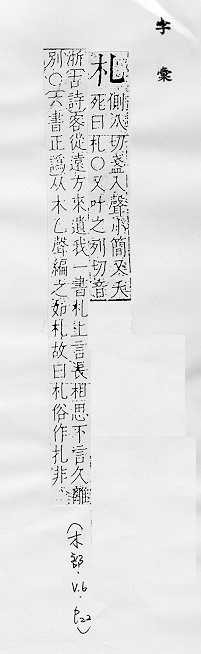 字彙
札 側八切盞入聲小簡又夭
死曰札○又叶之列切音
浙古詩客從遠方來遺我一書札上言長相思不言久離
別○六書正譌从木乙聲編之如札故曰札俗作扎非
(木部.V.6.P22)